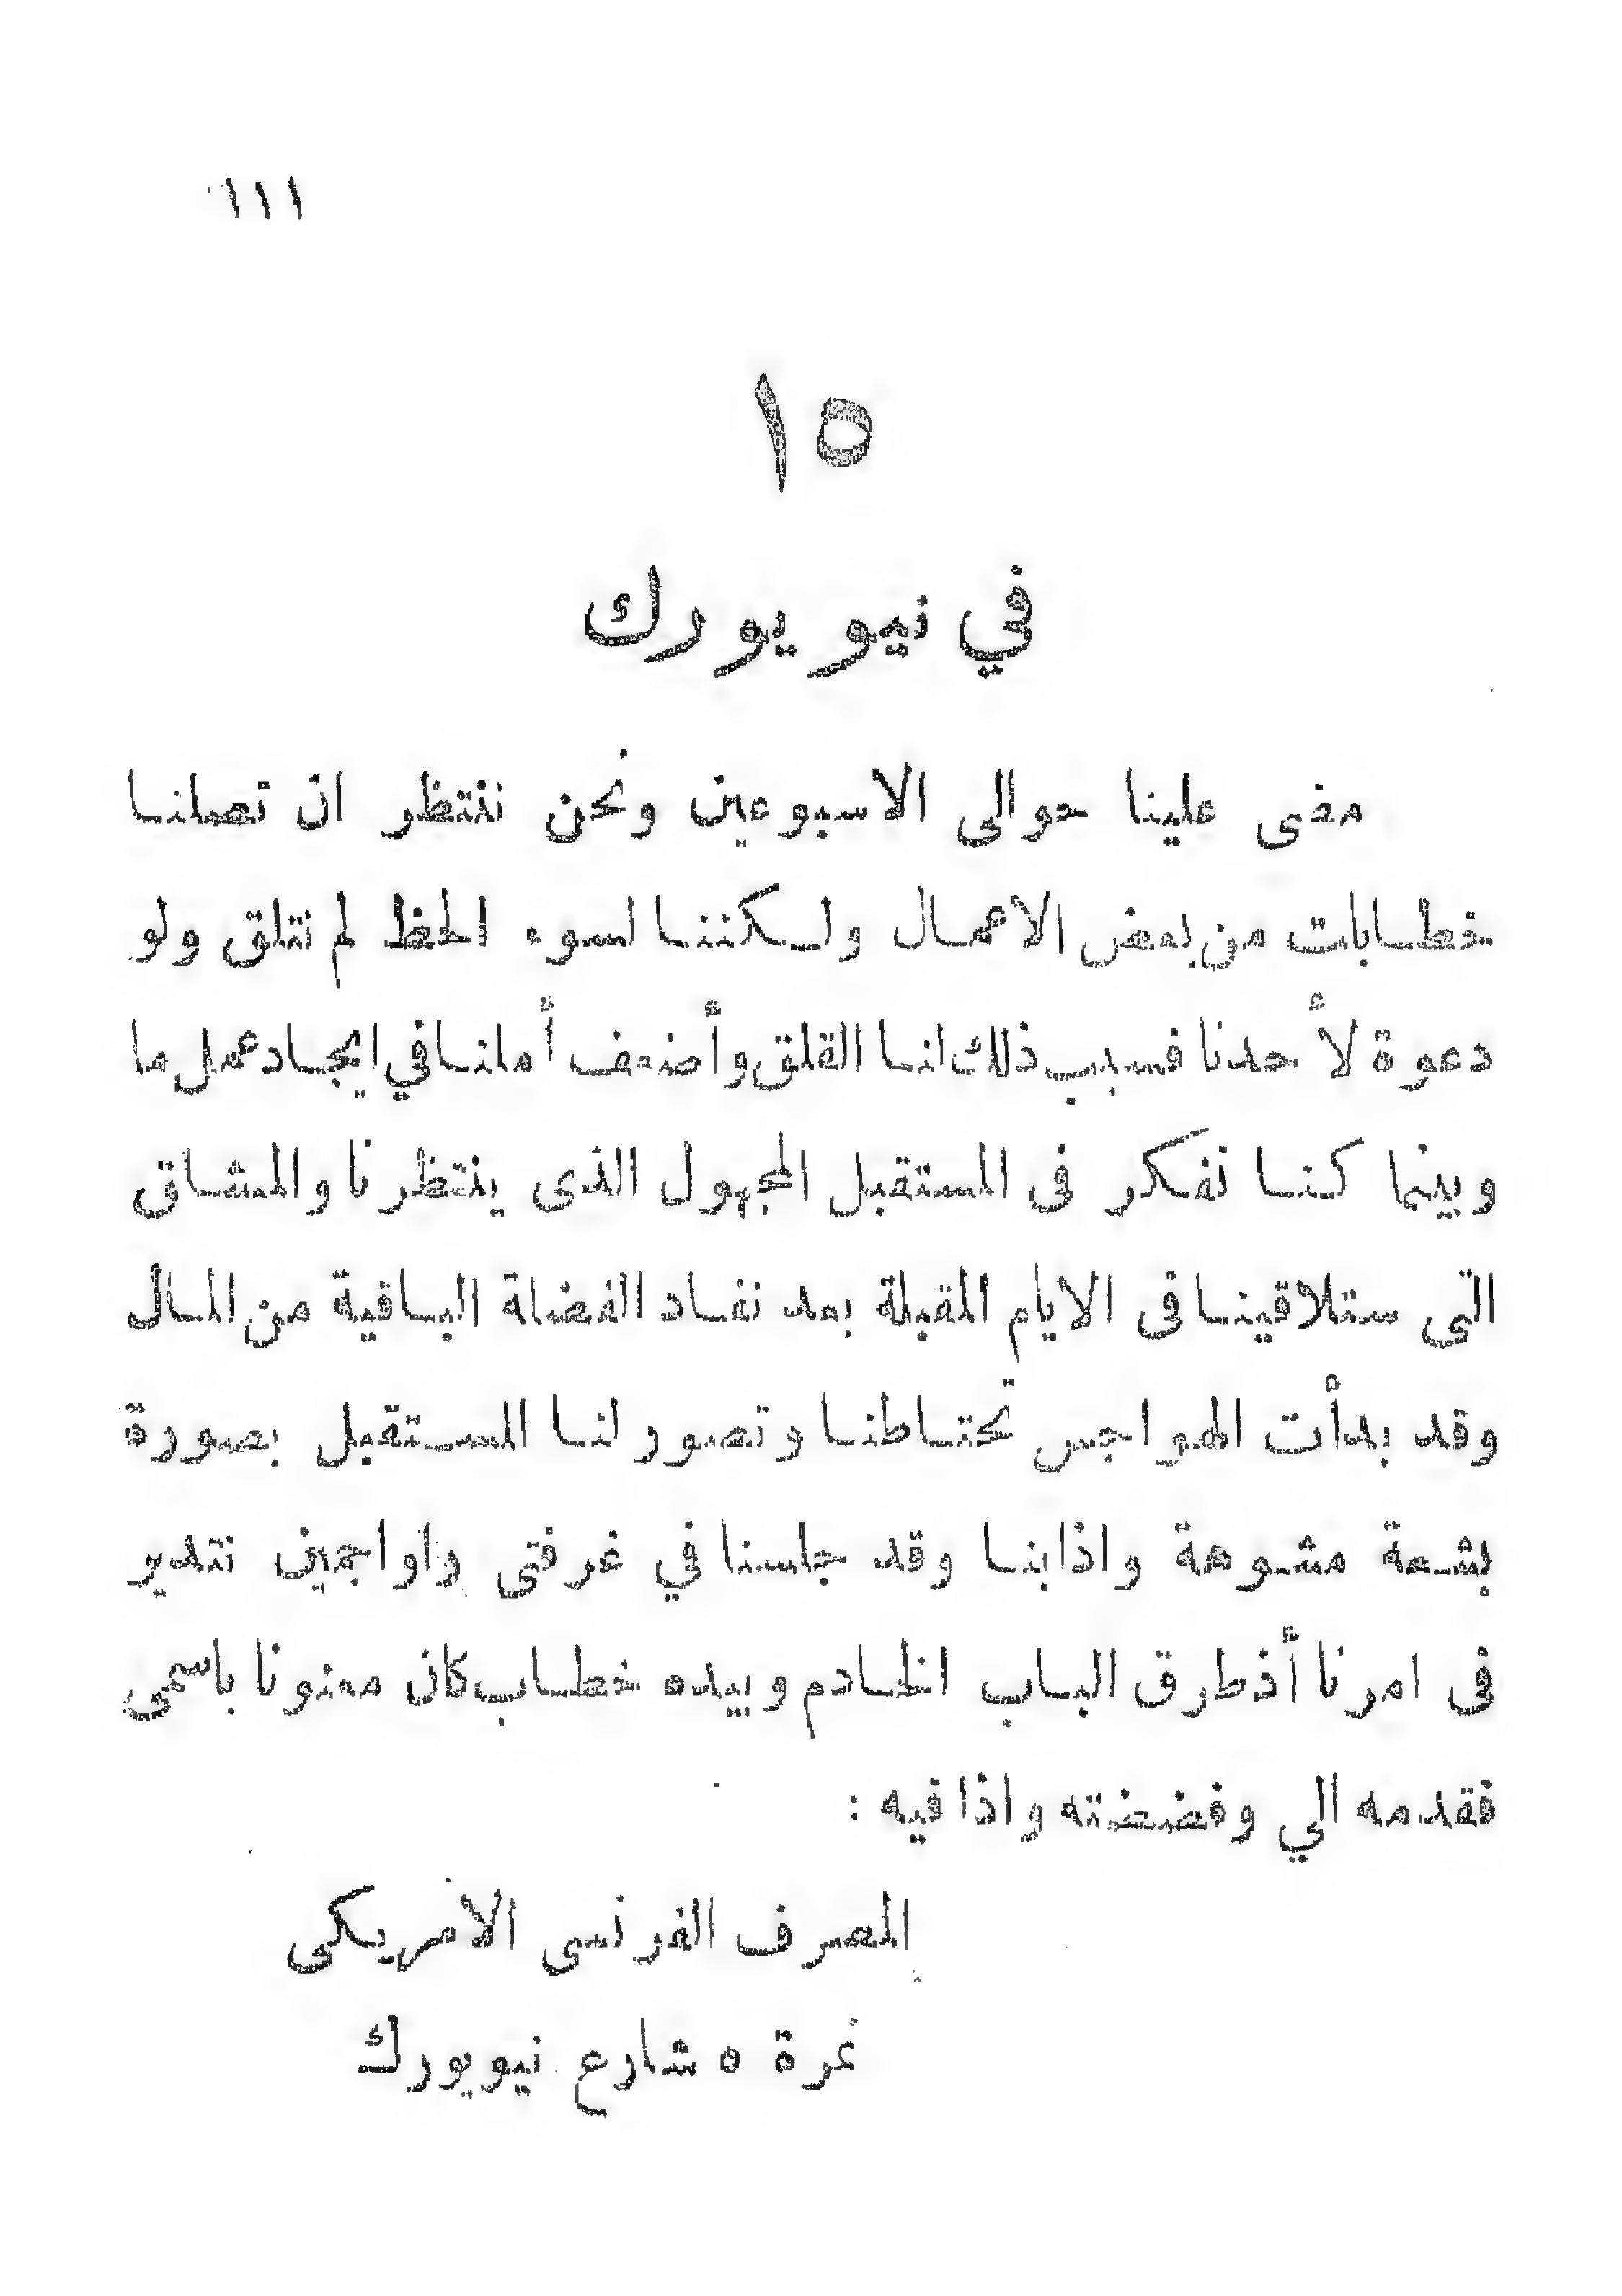 ١١١
١٥
في نيويورك
مضى علينا حوالى الاسبوعين ونحن ننتظر ان تصلنا
خطابات من بعض الاعمال ولكننا لسوء الحظ لم نتلق ولو
دعوة لأحدنا فسبب ذلك لنا القلق وأضعف أملنا في ايجاد عمل ما
وبينما كنا نفكر فى المستقبل المجهول الذى ينتظرنا والمشاق
التى ستلاقينا فى الايام المقبلة بعد نفاد الفضلة الباقية من المال
وقد بدأت الهواجس تحتاطنا وتصور لنا المستقبل بصورة
بشعة مشوهة واذا بنا وقد جلسنا في غرفتى واجمين نتدبر
فى امرنا أذ طرق الباب الخادم وبيده خطاب كان معنونا باسمى
فقدمه الي وفضضته واذا فيه :
المصرف الفرنسى الامريكى
نمرة ٥ شارع نيويورك